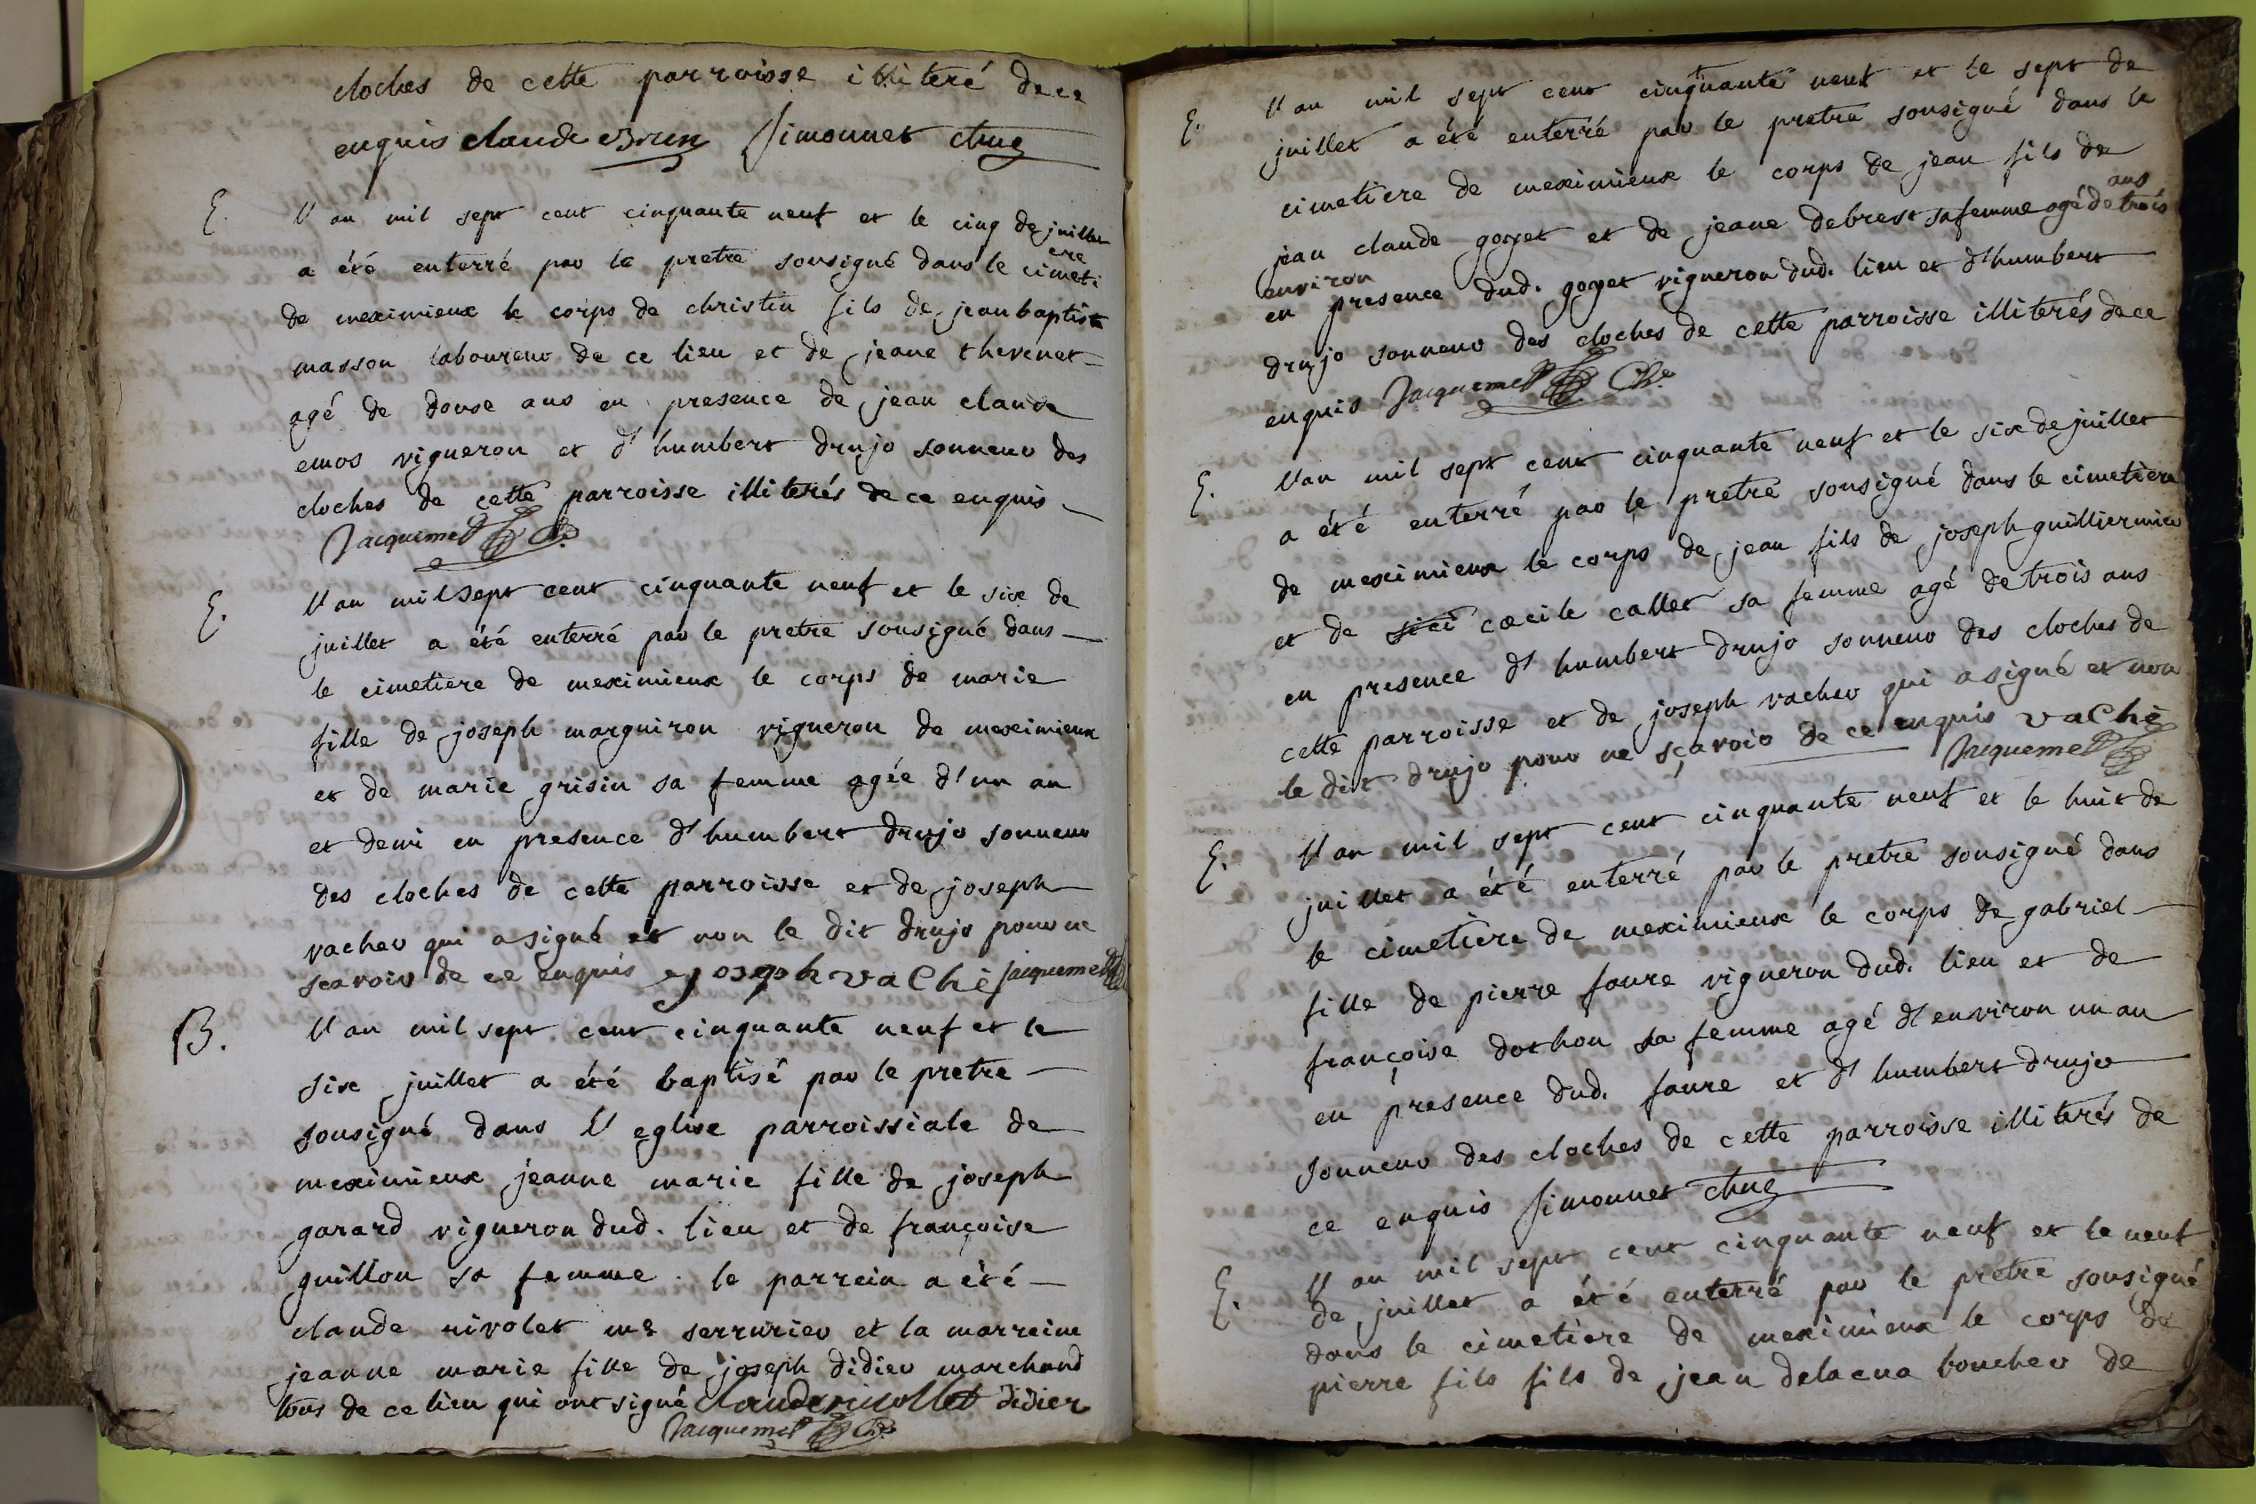 cloches de cette parroisse illiteré de ce
enquis claude Brun Simonnet
E. l'an mil sept cent cinquante neuf et le cinq de juillet
a été enterré par le pretre sousigné dans le cimetiere
de meximieux le corps de christin fils de jean baptiste
masson laboureur de ce lieu et de jeane thevenet
agé de douse ans en presence de jean claude
emos vigneron et d'humbert drujo sonneur des
cloches de cette parroisse illiterés de ce enquis
Jacquemet
E. l'an mil sept cent cinquante neuf et le six de
juillet a été enterré par le pretre sousigné dans
le cimetiere de meximieux le corps de marie
fille de joseph marguiron vigneron de meximieux
et de marie grisin sa femme agée d'un an
et demi en presence d'humbert drujo sonneur
des cloches de cette parroisse et de joseph
vacher qui a signé et non le dit drujo pour ne
scavoir de ce enquis joseph vaché Jacquemet
B. l'an mil sept cent cinquante neuf et le
six juillet a été baptisé par le pretre
sousigné dans l'eglise parroissiale de
meximieux jeanne marie fille de joseph
garard vigneron dud. lieu et de françoise
guillon sa femme. le parrein a été
claude nivolet me serrurier et la marreine
jeanne marie fille de joseph didier marchand
tous de ce lieu qui ont signé Claude nivollet didier
Jacquemet
E. l'an mil sept cent cinquante neuf et le sept de
juillet a été enterré par le pretre sousigné dans le
cimetiere de meximieux le corps de jean fils de
jean claude goyet et de jeane debrest sa femme agé de trois ans
environ
en presence dud. goyet vigneron dud. lieu et d'humbert
drujo sonneur des cloches de cette parroisse illiterés de ce
enquis Jacquemet
E. l'an mil sept cent cinquante neuf et le six de juillet
a été enterré par le pretre sousigné dans le cimetiere
de meximieux le corps de jean fils de joseph guilliermin
et de cœcile callet sa femme agé de trois ans
en presence d'humbert drujo sonneur des cloches de
cette parroisse et de joseph vacher qui a signé et non
le dit drujo pour ne sçavoir de ce enquis vaché
Jacquemet
E. l'an mil sept cent cinquante neuf et le huit de
juillet a été enterré par le pretre sousigné dans
le cimetiere de meximieux le corps de gabriel
fille de pierre faure vigneron dud. lieu et de
françoise dothon sa femme agé d'environ un an
en presence dud. faure et d'humbert drujo
sonneur des cloches de cette parroisse illiterés de
ce enquis Simonnet
E. l'an mil sept cent cinquante neuf et le neuf
de juillet a été enterré par le pretre sousigné
dans le cimetiere de meximieux le corps de
pierre fils fils de jean delacua boucher de